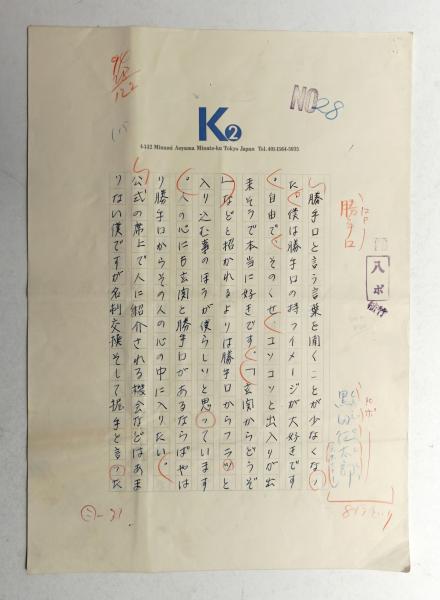 NO 28
K2
4-112 Minami Aoyama Minato-ku Tokyo Japan Tel. 401-1564-5035
勝手口
八ポ
黒田征太郎
勝手口と言う言葉を聞くことが少なくなっ
た。僕は勝手口の持つイメージが大好きです
。自由で、そのくせ、コソコソと出入りが出
来そうで本当に好きです。「玄関からどうぞ
」などと招かれるよりは勝手口からフラッと
入り込む事のほうが僕らしいと思っています
。人の心にも玄関と勝手口があるならばやは
り勝手口からその人の心の中に入りたい。
公式の席上で人に紹介される機会などはあま
りない僕ですが名刺交換そして握手と言った